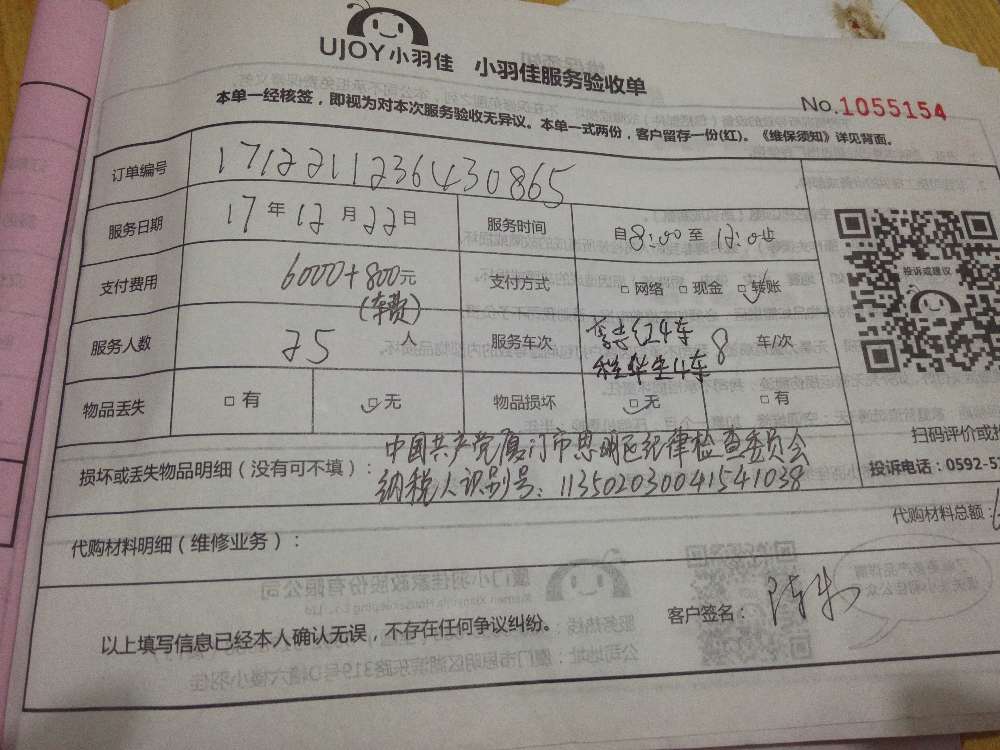 UJOY小羽佳 小羽佳服务验收单
No.1055154
本单一经核签，即视为对本次服务验收无异议。本单一式两份，客户留存一份(红)。《维保须知》详见背面。
订单编号 171221123643086​5
服务日期 17年12月22日 服务时间 自8:00至12:00止
支付费用 6000+800元 支付方式 □网络 □现金 □转账
(车费)
服务人数 25人 服务车次 8 车/次
物品丢失 □有 □无 物品损坏 □无 □有
投诉或建议
扫码评价或投
损坏或丢失物品明细（没有可不填）： 中国共产党厦门市思明区纪律检查委员会
纳税人识别号：113502030041541038
投诉电话：0592-5
代购材料明细（维修业务）：
代购材料总额：
以上填写信息已经本人确认无误，不存在任何争议纠纷。
客户签名：